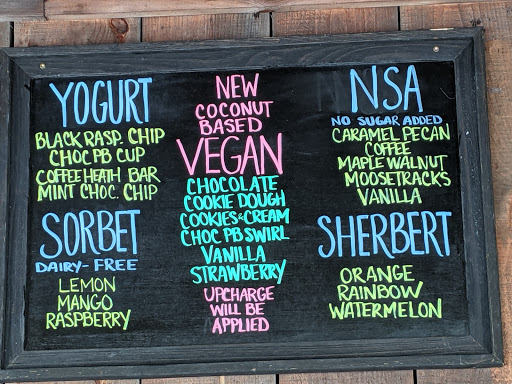 YOGURT
BLACK RASP. CHIP
CHOC PB CUP
COFFEE HEATH BAR
MINT CHOC. CHIP
SORBET
DAIRY-FREE
LEMON
MANGO
RASPBERRY
NEW
COCONUT
BASED
VEGAN
CHOCOLATE
COOKIE DOUGH
COOKIES&CREAM
CHOC PB SWIRL
VANILLA
STRAWBERRY
UPCHARGE
WILL BE
APPLIED
NSA
NO SUGAR ADDED
CARAMEL PECAN
COFFEE
MAPLE WALNUT
MOOSETRACKS
VANILLA
SHERBERT
ORANGE
RAINBOW
WATERMELON